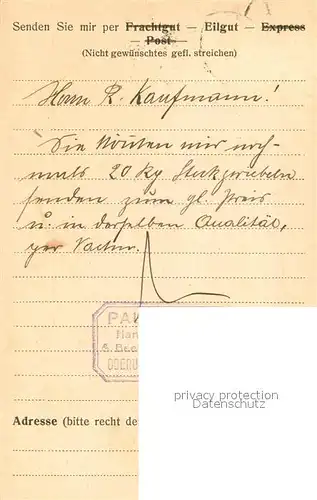 Senden Sie mir per Frachtgut — Eilgut — Express
— Post —
(Nicht gewünschtes gefl. streichen)
Herrn R. Kaufmann!
Sie könten mir noch-
mals 20 Kg Steckzwiebeln
senden zum gl. Preis
u. in derselben Qualität,
per Nachn.
PA
Han
A. Bee
OBERU
privacy protection
Datenschutz
Adresse (bitte recht de